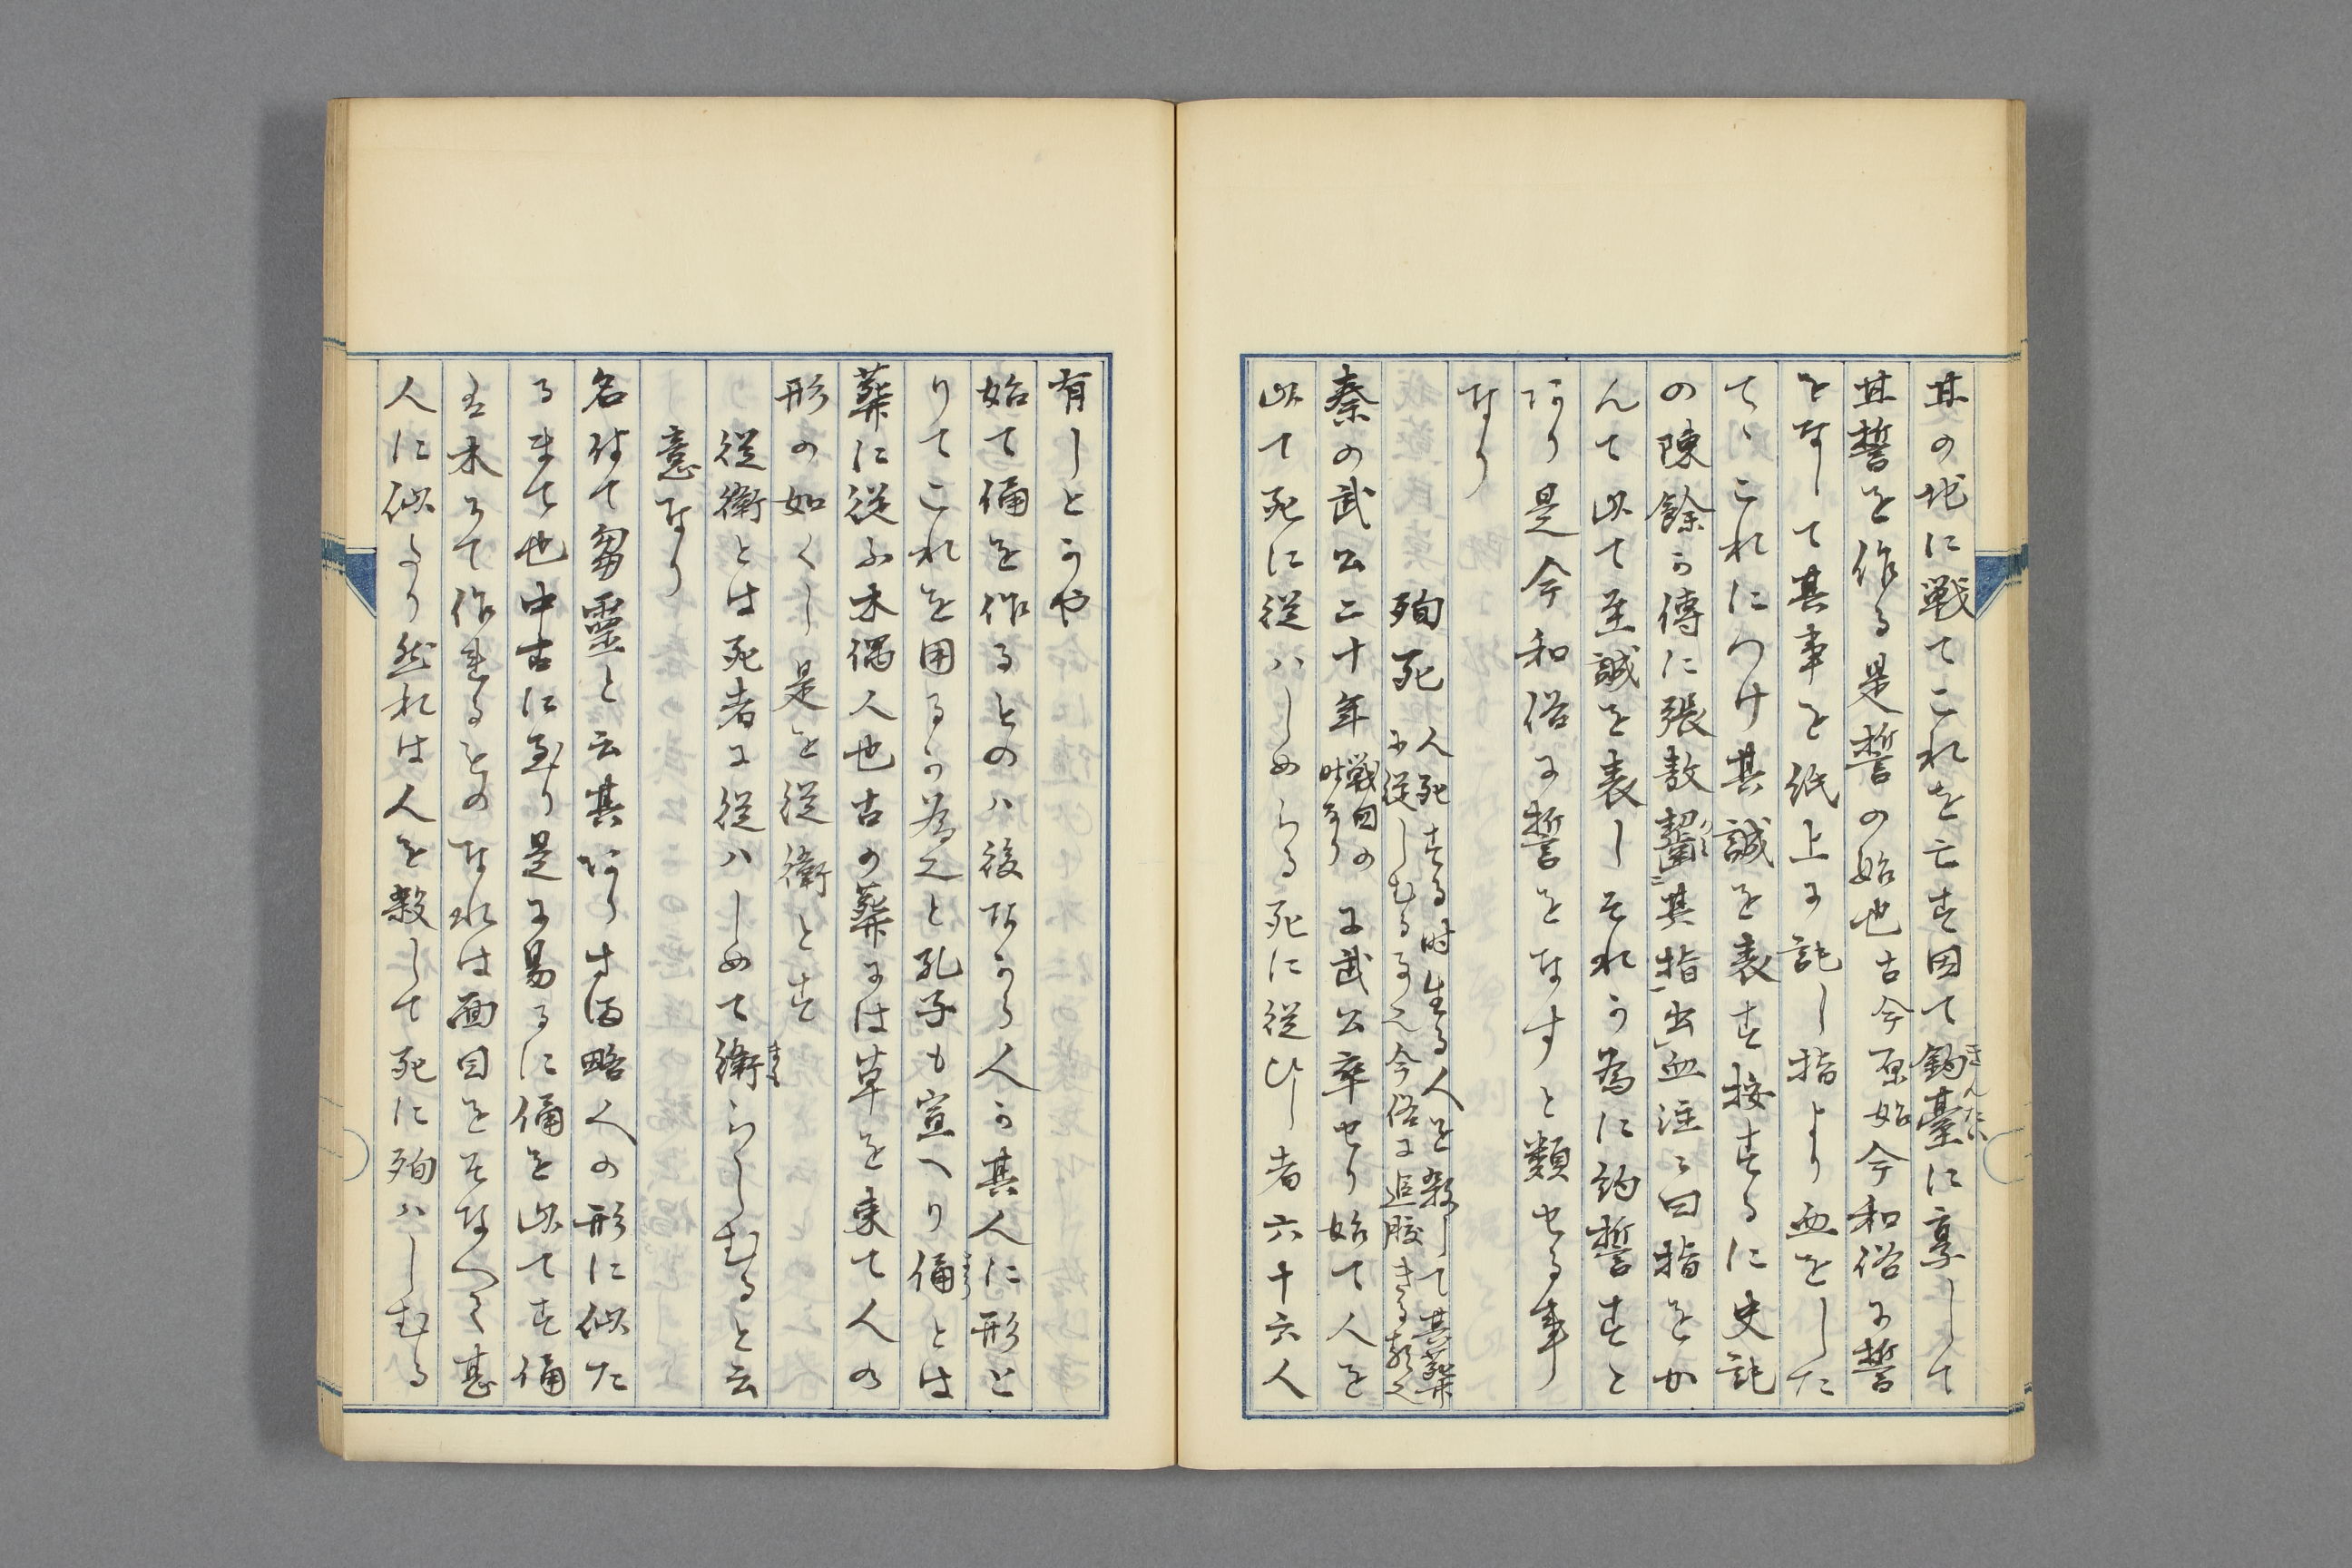 甘の地に戦てこれを亡す因て鈞臺に享して
甘誓を作る是誓の始也古今原始今和俗に誓
をなして其事を紙上に記し指より血をした
てゝこれにつけ其誠を表す按するに史記
の陳餘か傳に張敖齧其指出血注に曰指をか
んて以て至誠を表しそれか為に約誓すと
あり是今和俗に誓をなすと類せる事
なり
殉死 人死する時生る人を殺して其葬
に従しむる事也今俗に追腹きる類也
秦の武公二十年 戦国の
時なり に武公卒せり始て人を
以て死に従ハしめらる死に従ひし者六十六人
有しとかや
始て俑を作るものハ後なからん人か其人に形と
りてこれを用るか為也と孔子も宣へり俑とは
葬に従ふ木偶人也古の葬には草を束て人の
形の如くし是を従衛とす
従衛とは死者に従ハしめて衛らしむると云
意なり
名付て芻靈と云其形あらす略人の形に似た
るまて也中古に至り是に易るに俑を以てす俑
は木にて作れるものなれは面目をそなへて甚
人に似より然れは人を殺して死に殉ハしむる